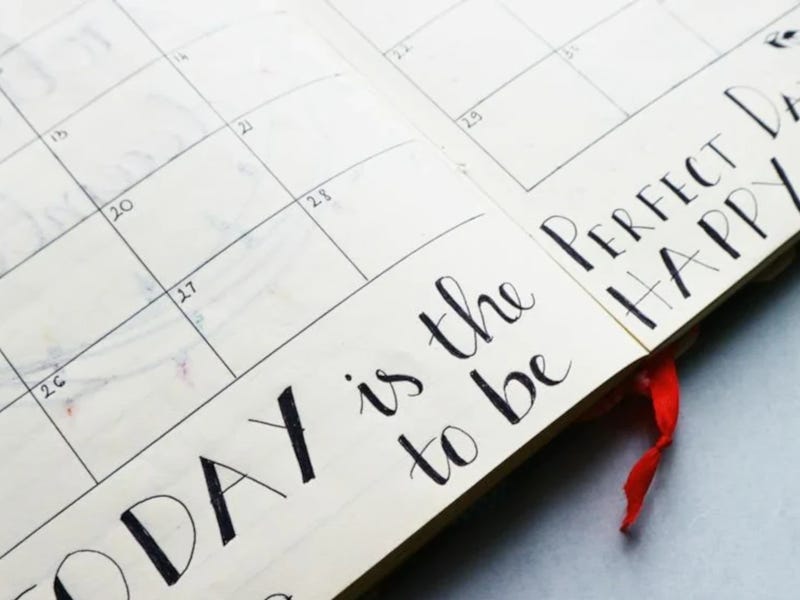 13 14
20 21
26 27 28
22
29 30
TODAY is the PERFECT DA
to be HAPPY